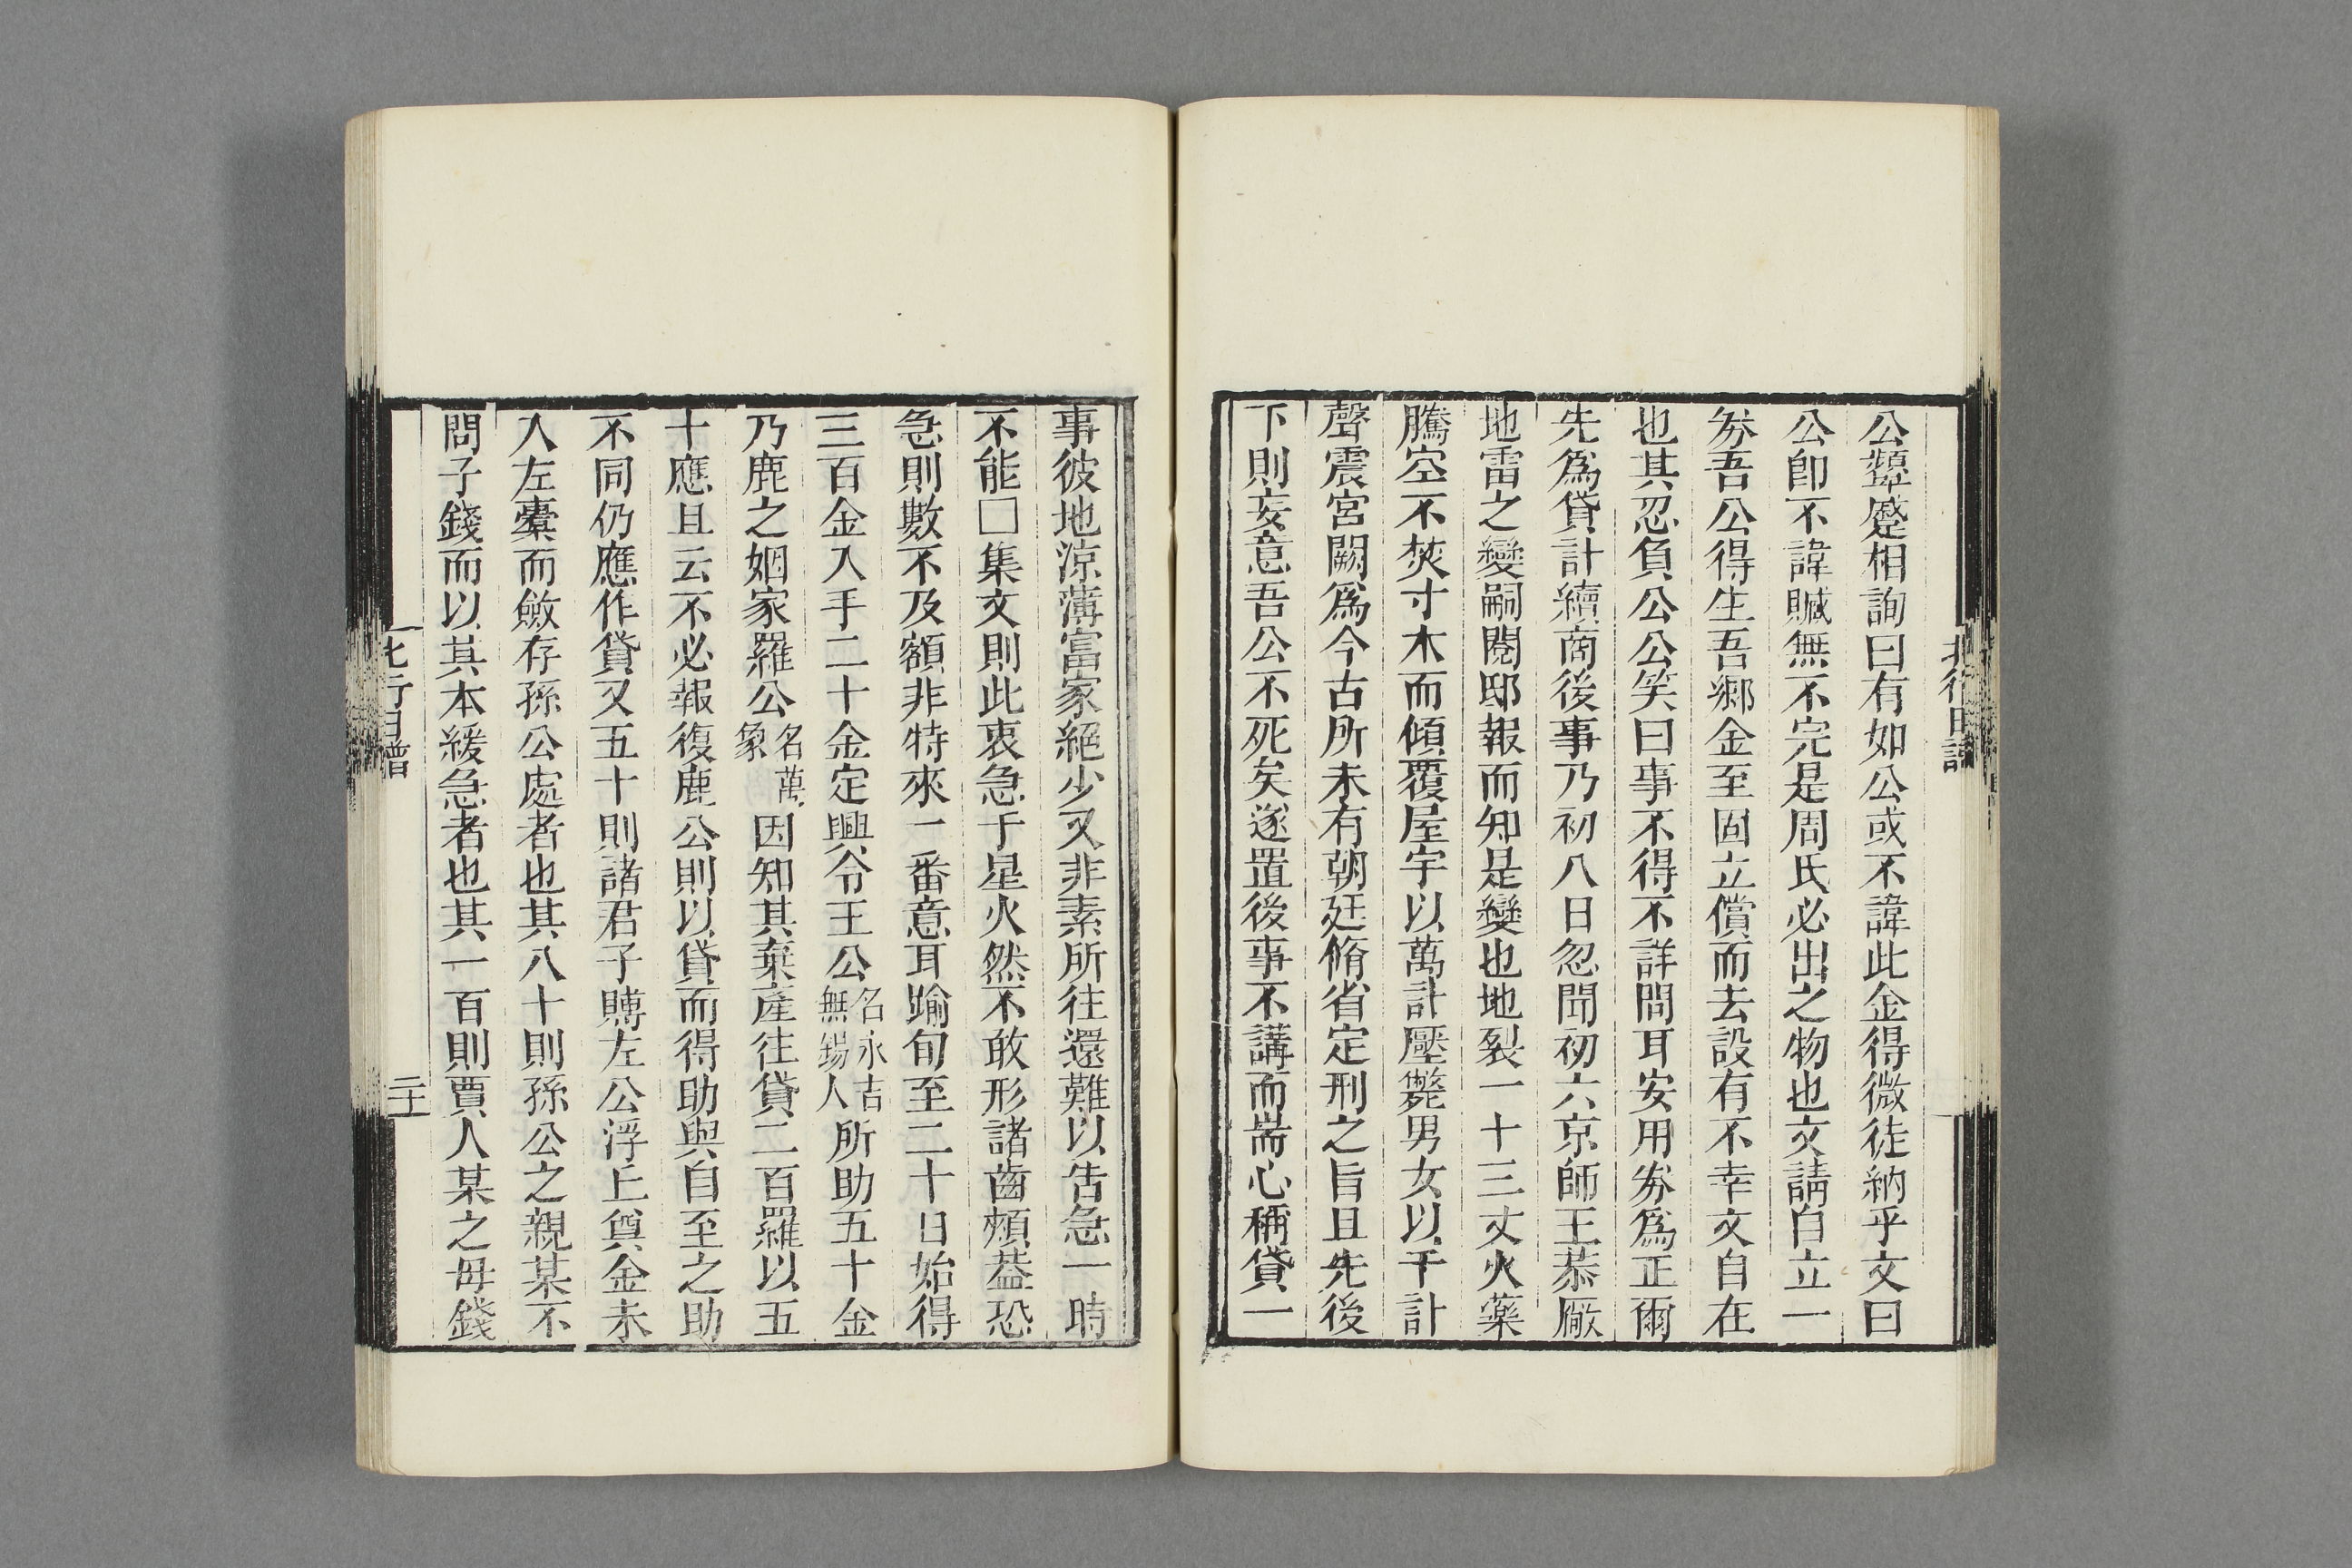 公顰蹙相詢曰有如公或不諱此金得微徒納乎文曰
公卽不諱贓無不完是周氏必出之物也文請自立一
劵吾公得生吾鄉金至固立償而去設有不幸文自在
也其忍負公公笑曰事不得不詳問耳安用劵爲正爾
先爲貸計續商後事乃初八日忽聞初六京師王恭厰
地雷之變嗣閱邸報而知是變也地裂一十三丈火藥
騰空不焚寸木而傾覆屋宇以萬計壓斃男女以千計
聲震宮闕爲今古所未有朝廷脩省定刑之旨且先後
下則妄意吾公不死矣遂置後事不講而耑心稱貸一
事彼地涼薄富家絕少又非素所往還難以告急一時
不能□集文則此衷急于星火然不敢形諸齒頰葢恐
急則數不及額非特來一番意耳踰旬至二十日始得
三百金入手二十金定興令王公名永吉無錫人所助五十金
乃鹿之姻家羅公名萬象因知其棄產往貸二百羅以五
十應且云不必報復鹿公則以貸而得助與自至之助
不同仍應作貸又五十則諸君子賻左公浮丘奠金未
入左橐而斂存孫公處者也其八十則孫公之親某不
問子錢而以其本緩急者也其一百則賈人某之母錢
北行日譜
二十